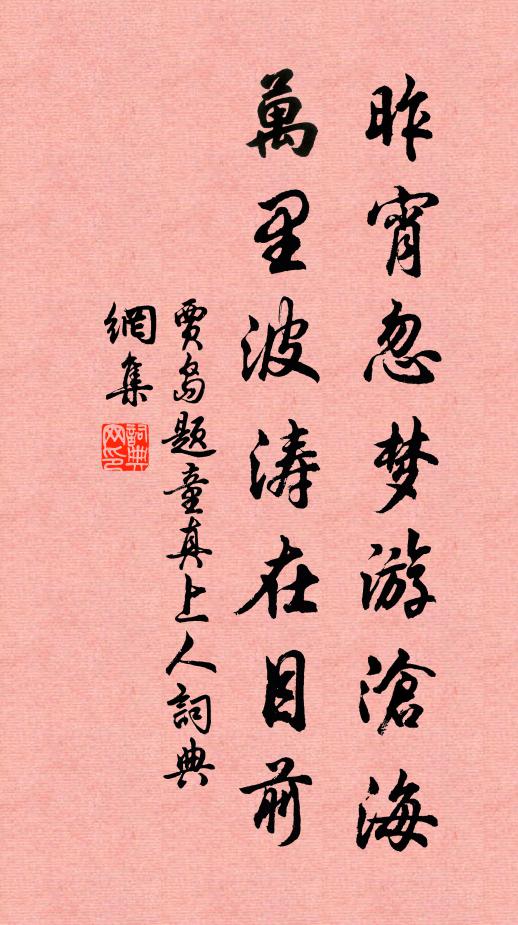 昨宵忽梦游滄海
萬里波涛在目前
賈島题童真上人詞典
網集
詞典网印